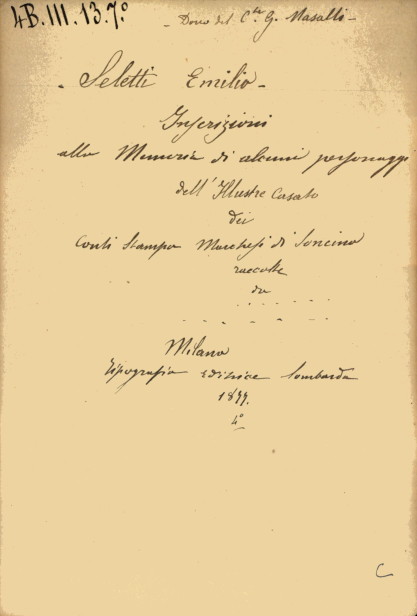 4B.III.13.7º
- Dono del Cte. G. Nasalli -
- Seletti Emilio -
Inscrizioni
alla Memoria di alcuni personaggi
dell'Illustre Casato
dei
Conti Stampa Marchesi di Soncino
raccolte
da
. . . . . .
- . . . . . . -
Milano
Tipografia editrice lombarda
1877.
4º
C